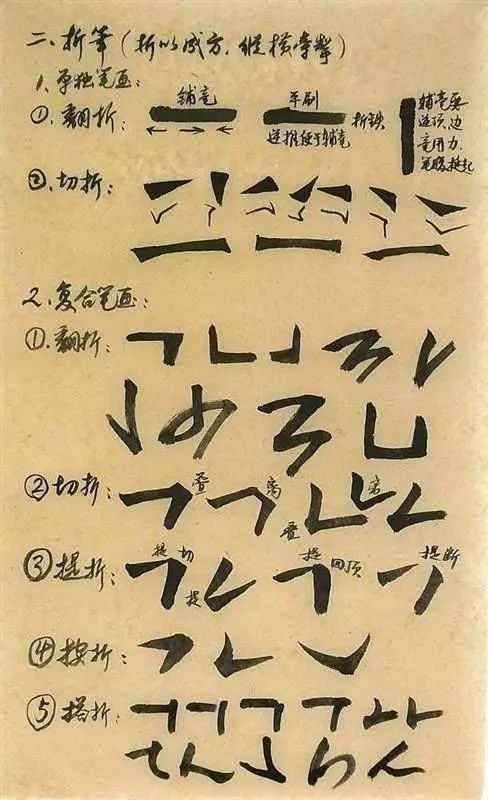 二、折笔(折以成方,纵横牵掣)
1.单独笔画:
①.翻折: 铺毫 平刷 折锋
逆推便于铺毫
铺毫要
逆顶,边
竟用力,
笔腹挺起
②.切折:
2.复合笔画:
①.翻折:
②切折: 叠 离 叠 离
③提折: 提 切 提 提 回顶 提断
④按折:
⑤搭折: